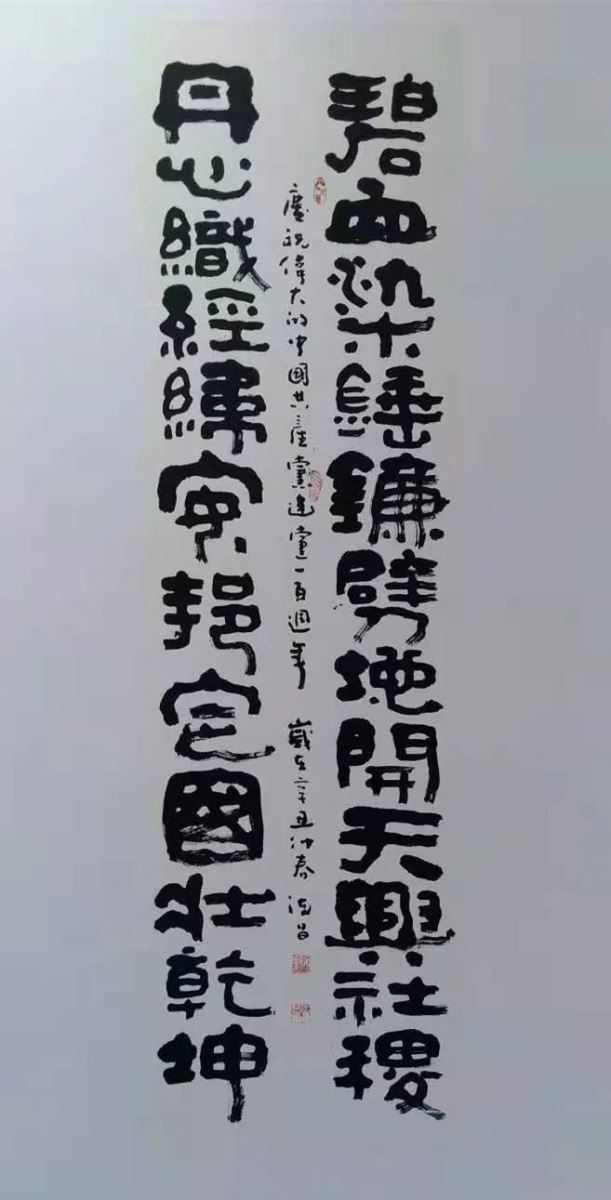 碧血染錘鐮劈地開天興社稷
慶祝偉大的中國共產黨建黨一百週年 歲在辛丑仲春 
丹心織經緯安邦定國壯乾坤